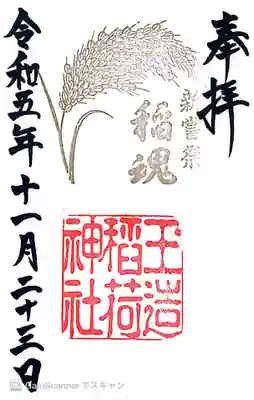 奉拝
新嘗祭
稲魂
玉造
稲荷
神社
令和五年十一月二十三日
CamScanner でスキャン